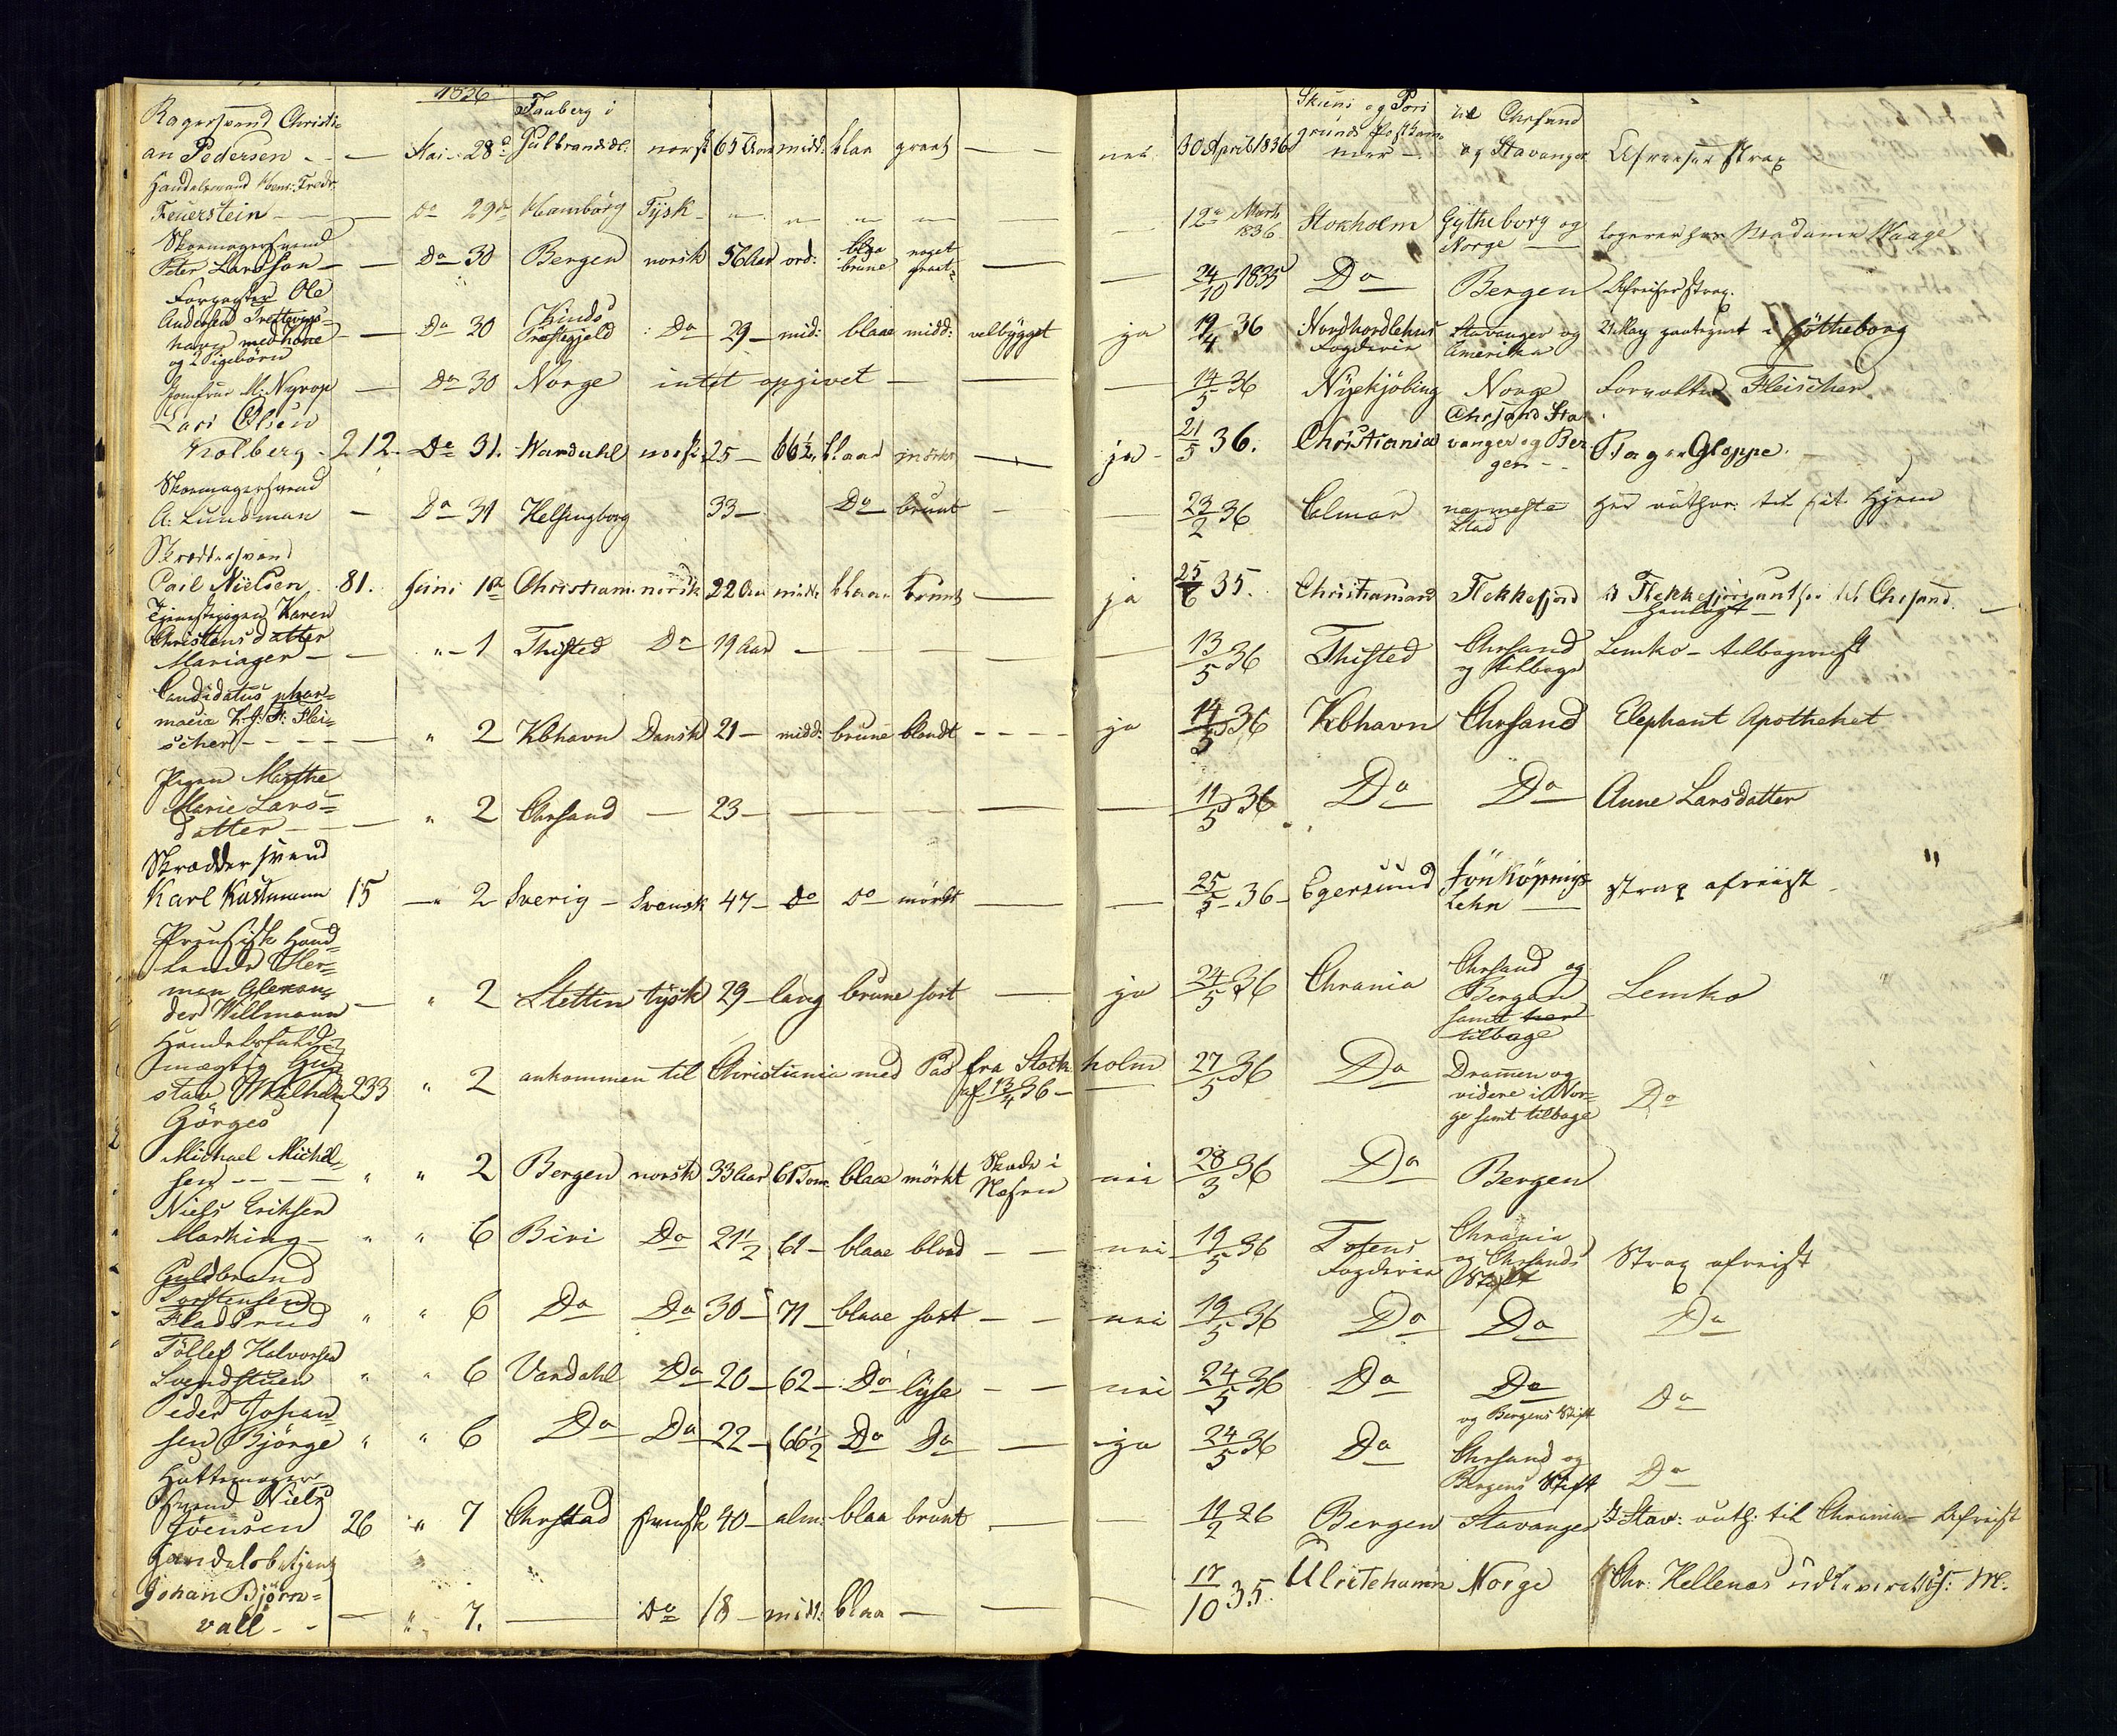 1836
Bagersvend Christi=
an Pedersen - - — Mai - 28de Faaberg i Gulbrandsdl: norsk 65 Aar midd: blaa graat — — nei 30 April 1836 Skiens og Pors grunds Postkam mer — til Chrsand og Stavanger Afreiser strax
Handelsmand Hens: Fredr:
Feuerstein — — Do 29de Hamborg Tysk - — — — — — — 12te Marts 1836 Stokholm Gøtheborg og Norge — logerer hos Madame Waage
Skomagersvend
Peter Larsson — — Do 30 Bergen norsk 56 Aar ord: blaa brune noget graat — — 24/10 1835 Do Bergen Afreiser strax.
Forgaster Ole
Andersen Trestevigs=
havn med Kone — Do 30 Præstegjeld : Do 29 — mid: blaae midd: velbygget ja 19/4 36 Nordhordlehns Fogderie Stavanger og Amerika i Gøtheborg
og 2 Pigebørn
Jomfrue M. Nyrop — Do 30 Norge intet opgivet — — — 14/5 36 Nyekjøbing Norge Forvalter Fleischer
Lars Olsen
Kolberg - 212 - Do 31. Wardahl norsk 25 — 66½ blaae mörkt — ja - 21/5 36. Christiania Chrsand Sta vanger og Ber gen - - Tager Gloppe.
Skomagersvend
A: Lundman — Do 31 Helsingborg 33 — Do brunt — — 23/2 36 Calmar nærmeste Stad her uutfær: til sit Hjem
Skræddersvend
Poil Nielsen 81. Juni 1te Christians: norsk 22 Aar midd: blaae brunt — ja 25/6 35. Christiansand Flekkefjord i Flekkefjord til Chrsand.
Tjenestepigen Karen
Christensdatter
Mariager — — " — 1 Thisted Do 19 Aar — — — — — 13/5 36 Thisted Chrsand og tilbage Lemko - tilbagereist
Candidatus phar=
macia H. J. F. Flei=
scher - - - - — " 2 Kbhavn Dansk 21 — midd: brune blondt - - - - ja 14/5 36 Kbhavn Chrsand Elephant Apotheket
Pigen Marthe
Marie Lars=
datter - - — " 2 Chrsand — 23 — — — — — — 11/5 36 Do Do Anne Larsdatter
Skrædder svend
Karl Kastmann 15 — " 2 Sverig - Svensk 47 — do do mörkt — — 25/5 - 36 - Egersund Jönköpings Lehn — strax afreist - "
Preusisk Hand=
lende Her=
man Alexan=
der Willmann — " 2 Stettin tysk 29 — lang brune sort — ja 24/5 36 Chrania Chrsand og Bergen samt tilbage Lemko
Handelsfuld=
mægtig Gu=
stav Wilhelm 233 " 2 ankommen til Christiania med Pas fra Stock holm af 13/4 36 — 27/5 36 Do Dramen og videre i Nor= ge samt tilbage Do
Görges
Michael Michel=
sen - - - - " " 2 Bergen norsk 33 Aar 61 Tom: blaae mörkt Skade i Næsen nei 28/3 36 Do Bergen
Niels Eriksen
Marking - " " 6 Biri Do 21½ 61 — blaae blond — — nei 19/5 36 Totens Fogderie Chrania og Chrsands Stift Strax afreist
Guldbrand
Torstensen
Fladsrud " " 6 Do Do 30 — 71 — blaae sort — — nei 19/5 36 Do Do Do
Töllef Halvorsen
Svendstuen " " 6 Vardahl Do 20 — 62 — Do lyse — — nei 24/5 36 Do Do og Bergens Stift Do
Peder Johan=
sen Bjørge " " 6 Do Do 22 — 66½ Do Do — ja 24/5 36 Do Chrsand og Bergens Stift Do
Hattemager
Svend Niels
Joensen 26 " 7 Chrstad svensk 40 — alm: blaa brunt — — 11/2 26 Bergen Stavanger I Stav: uutf: til Chrania - Afreist
Handelsbetjent
Johan Bjørn=
vall - - — " 7. — Do 18 — midt: blaa — — 17/10 35. Ulricehamn Norge Chr: Hellenas